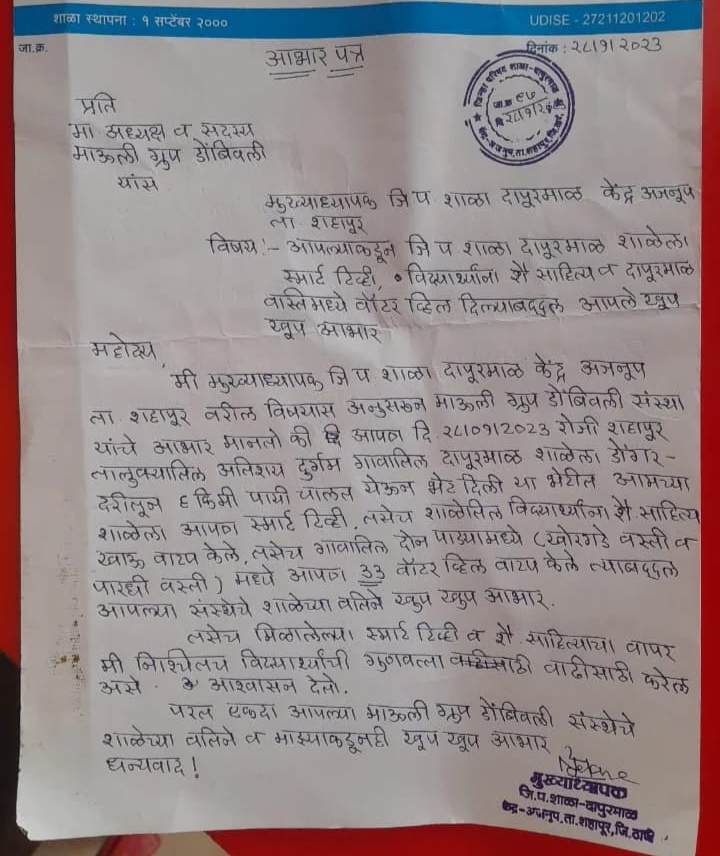 शाळा स्थापना : १ सप्टेंबर २०००
UDISE - 27211201202
जा.क्र.
दिनांक : २८।९।२०२३
आभार पत्र
जिल्हा परिषद शाळा-दापुरमाळ
जा.क्र. ९७
केंद्र-अजनुप, ता.शहापूर, जि.ठाणे
प्रति
मा अध्यक्ष व सदस्य
माऊली ग्रुप डोंबिवली
यांस
मुख्याध्यापक जि प शाळा दापुरमाळ केंद्र अजनूप
ता शहापूर
विषय :- आपल्याकडून जि प शाळा दापुरमाळ शाळेला
स्मार्ट टिव्ही, विद्यार्थ्यांना शै साहित्य व दापूरमाळ
वस्तिमध्ये वॉटर व्हिल दिल्याबददुल आपले खूप
खूप आभार
महोदय,
मी मुख्याध्यापक जि प शाळा दापुरमाळ केंद्र अजनूप
ता शहापूर वरील विषयास अनुसरून माऊली ग्रुप डोंबिवली संस्था
यांचे आभार मानतो की आपण दि २८।०९।२०२३ रोजी शहापूर
तालुक्यातिल अतिशय दुर्गम गावातिल दापूरमाळ शाळेला डोंगर-
दरीतून ६ किमी पायी चालत येऊन भेट दिली या भेटीत आमच्या
शाळेला आपण स्मार्ट टिव्ही, तसेच शाळेतिल विद्यार्थ्यांना शै साहित्य
खाऊ वाटप केले. तसेच गावातिल दोन पाड्यामध्ये (खोरगडे वस्ती व
पारधी वस्ती) मध्ये आपण 33 वॉटर व्हिल वाटप केले त्याबददुल
आपल्या संस्थेचे शाळेच्या वतिने खुप खुप आभार.
तसेच मिळालेल्या स्मार्ट टिव्ही व शै साहित्याचा वापर
मी निश्चितच विद्यार्थ्यांची गुणवत्ता वाढीसाठी करेल
असे आश्वासन देतो.
परत एकदा आपल्या माऊली ग्रुप डोंबिवली संस्थेचे
शाळेच्या वतिने व माझ्याकडूनही खूप खूप आभार
धन्यवाद !
मुख्याध्यापक
जि.प.शाळा-दापुरमाळ
केंद्र-अजनुप,ता.शहापूर,जि.ठाणे